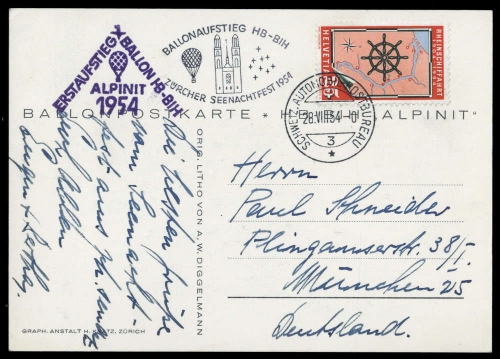 ERSTAUFSTIEG BALLON HB-BIH
ALPINIT
1954
BALLONAUFSTIEG HB-BIH
ZÜRCHER SEENACHTFEST 1954
HELVETIA
RHEINSCHIFFAHRT
SCHWEIZ. AUTOMOBIL-POSTBUREAU
28.VIII.54.-10
3
BALLONPOSTKARTE * HB- ALPINIT"
Die besten Grüsse
vom Seenacht-
fest aus
Herrn
Paul Schneider
Plinganserstr. 38/I.
München 25
Deutschland.
ORIG. LITHO VON A. W. DIGGELMANN
GRAPH. ANSTALT H. ZÜRICH